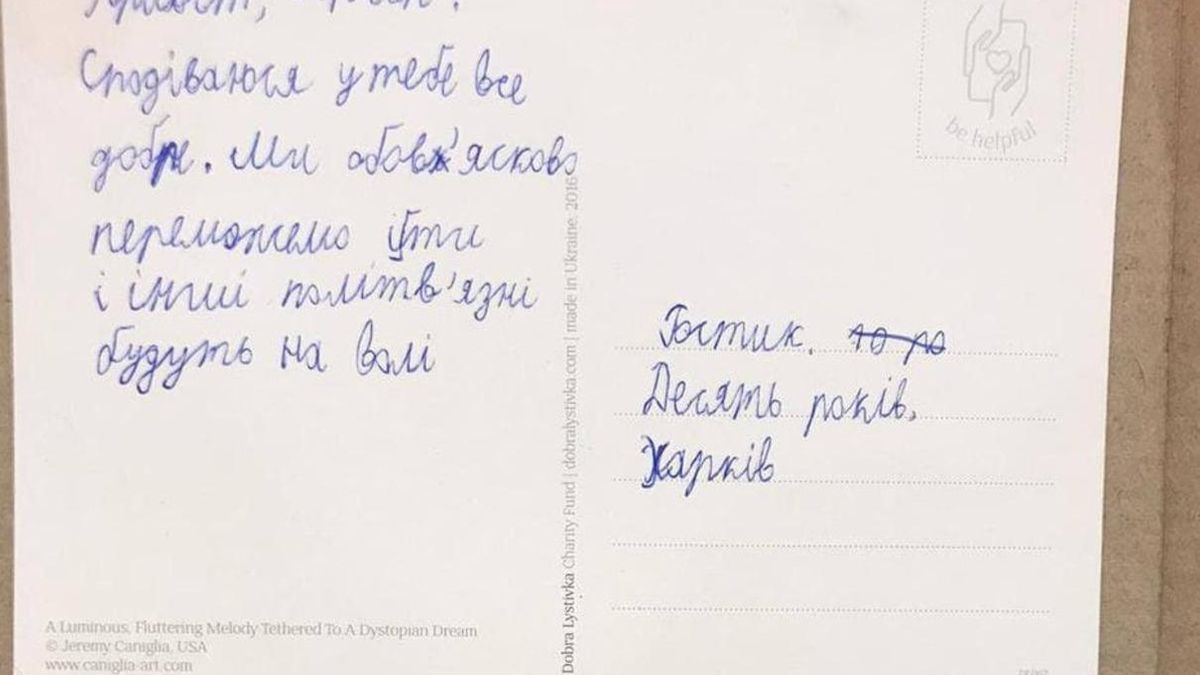 Сподіваюся у тебе все
добре. Ми обов'ясково
переможемо і ти
і інші політв'язні
будуть на волі
be helpful
Dobra Lystivka Charity Fund | dobralystivka.com | made in Ukraine. 2016
Ростик. 10 ро
Десять років.
Харків
A Luminous, Fluttering Melody Tethered To A Dystopian Dream
© Jeremy Caniglia, USA
www.caniglia-art.com